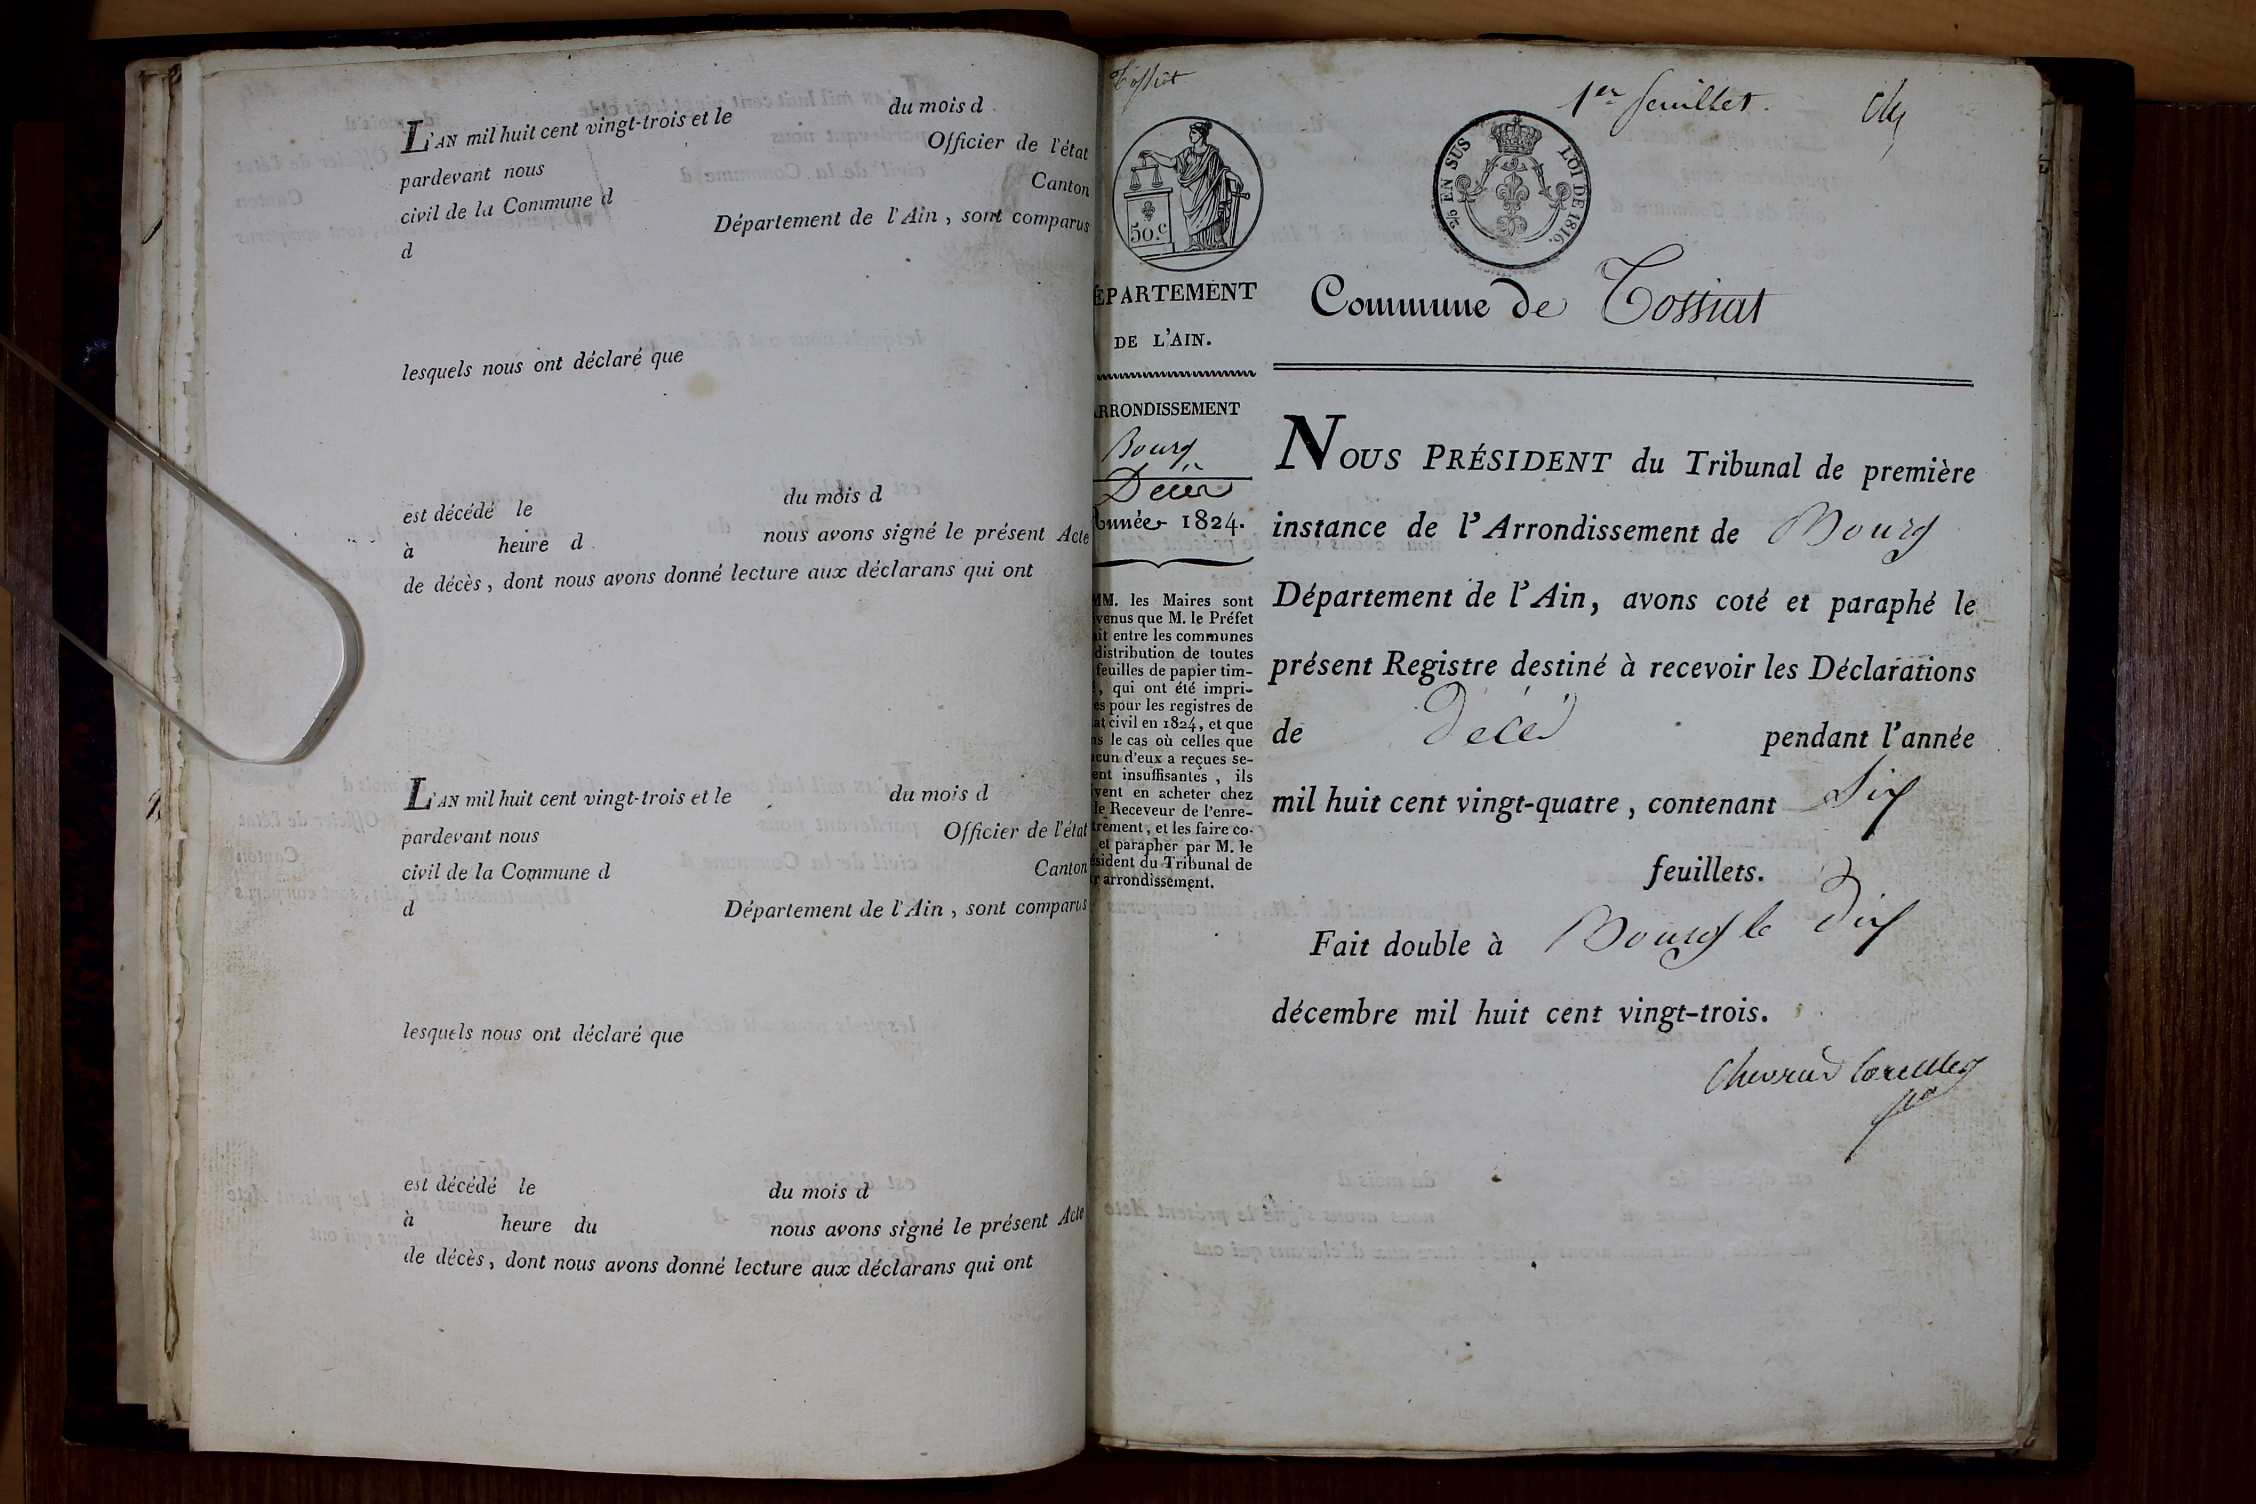 L'AN mil huit cent vingt-trois et le du mois d
pardevant nous Officier de l'état
civil de la Commune d Canton
d Département de l'Ain, sont comparus
lesquels nous ont déclaré que
est décédé le du mois d
à heure d nous avons signé le présent Acte
de décès, dont nous avons donné lecture aux déclarans qui ont
L'AN mil huit cent vingt-trois et le du mois d
pardevant nous Officier de l'état
civil de la Commune d Canton
d Département de l'Ain, sont comparus
lesquels nous ont déclaré que
est décédé le du mois d
à heure du nous avons signé le présent Acte
de décès, dont nous avons donné lecture aux déclarans qui ont
Tossiat
1er feuillet.
50.c
2/10 EN SUS
LOI DE 1816.
ÉPARTEMENT
DE L'AIN.
ARRONDISSEMENT
Bourg
Décès
Année 1824.
MM. les Maires sont
venus que M. le Préfet
ait entre les communes
distribution de toutes
feuilles de papier tim-
, qui ont été impri-
es pour les registres de
at civil en 1824, et que
ns le cas où celles que
acun d'eux a reçues se-
ent insuffisantes, ils
vent en acheter chez
le Receveur de l'enre-
trement, et les faire co-
et parapher par M. le
ésident du Tribunal de
r arrondissement.
Commune de Tossiat
NOUS PRÉSIDENT du Tribunal de première
instance de l'Arrondissement de Bourg
Département de l'Ain, avons coté et paraphé le
présent Registre destiné à recevoir les Déclarations
de Décès pendant l'année
mil huit cent vingt-quatre, contenant Six
feuillets.
Fait double à Bourg le Dix
décembre mil huit cent vingt-trois.